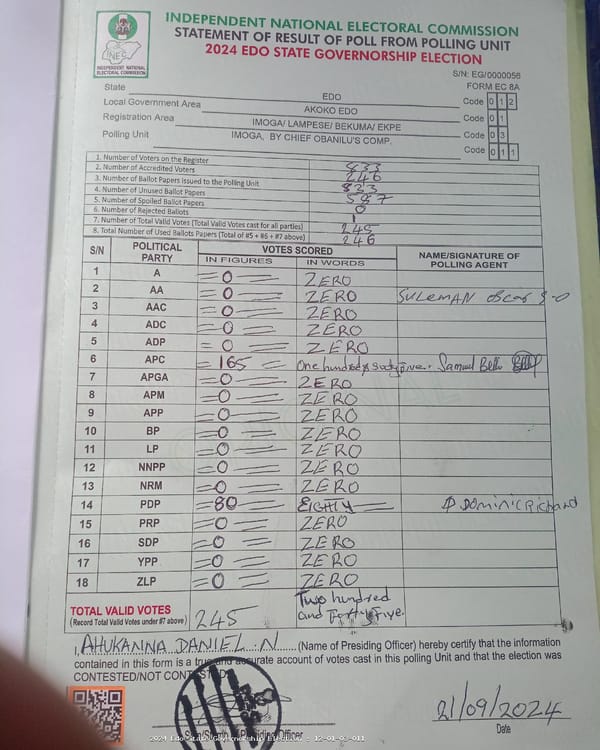 INDEPENDENT NATIONAL ELECTORAL COMMISSION
STATEMENT OF RESULT OF POLL FROM POLLING UNIT
2024 EDO STATE GOVERNORSHIP ELECTION
INEC
INDEPENDENT NATIONAL ELECTORAL COMMISSION
S/N: EG/0000056
FORM EC 8A
State EDO Code 0 1 2
Local Government Area AKOKO EDO Code 0 1
Registration Area IMOGA/ LAMPESE/ BEKUMA/ EKPE Code 0 3
Polling Unit IMOGA, BY CHIEF OBANILU'S COMP. Code 0 1 1
1. Number of Voters on the Register 833
2. Number of Accredited Voters 246
3. Number of Ballot Papers issued to the Polling Unit 833
4. Number of Unused Ballot Papers 587
5. Number of Spoiled Ballot Papers 0
6. Number of Rejected Ballots 1
7. Number of Total Valid Votes (Total Valid Votes cast for all parties) 245
8. Total Number of Used Ballots Papers (Total of #5 + #6 + #7 above) 246
S/N POLITICAL PARTY VOTES SCORED NAME/SIGNATURE OF POLLING AGENT
IN FIGURES IN WORDS
1 A =0= ZERO
2 AA =0= ZERO SULEMAN
3 AAC =0= ZERO
4 ADC =0= ZERO
5 ADP =0= ZERO
6 APC =165= One hundred & sixty five. Samuel Bello
7 APGA =0= ZERO
8 APM =0= ZERO
9 APP =0= ZERO
10 BP =0= ZERO
11 LP =0= ZERO
12 NNPP =0= ZERO
13 NRM =0= ZERO
14 PDP =80= EIGHTY DOMINIC Richard
15 PRP =0= ZERO
16 SDP =0= ZERO
17 YPP =0= ZERO
18 ZLP =0= ZERO
TOTAL VALID VOTES 245 Two hundred and Forty Five.
(Record Total Valid Votes under #7 above)
I, AHUKANNA DANIEL N (Name of Presiding Officer) hereby certify that the information
contained in this form is a true and accurate account of votes cast in this polling Unit and that the election was
CONTESTED/NOT CONTESTED
21/09/2024
Presiding Officer
Date
2024 Edo State Governorship Election - 12-01-03-011